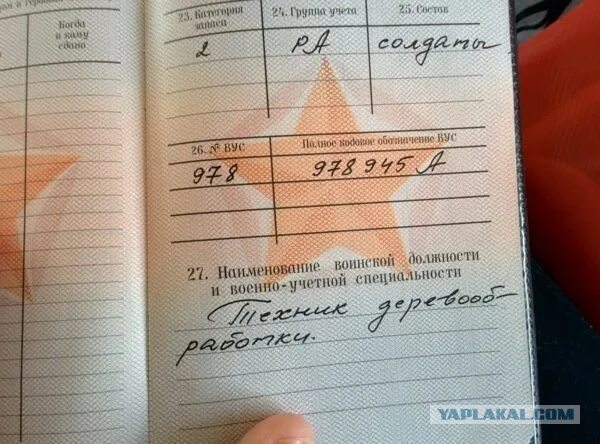 Когда
и кому
сдано
23. Категория
запаса
24. Группа учета
25. Состав
2
РА
солдаты
26. № ВУС
Полное кодовое обозначение ВУС
978
978945 А
27. Наименование воинской должности
и военно-учетной специальности
Техник деревооб-
работки.
YAPLAKAL.COM